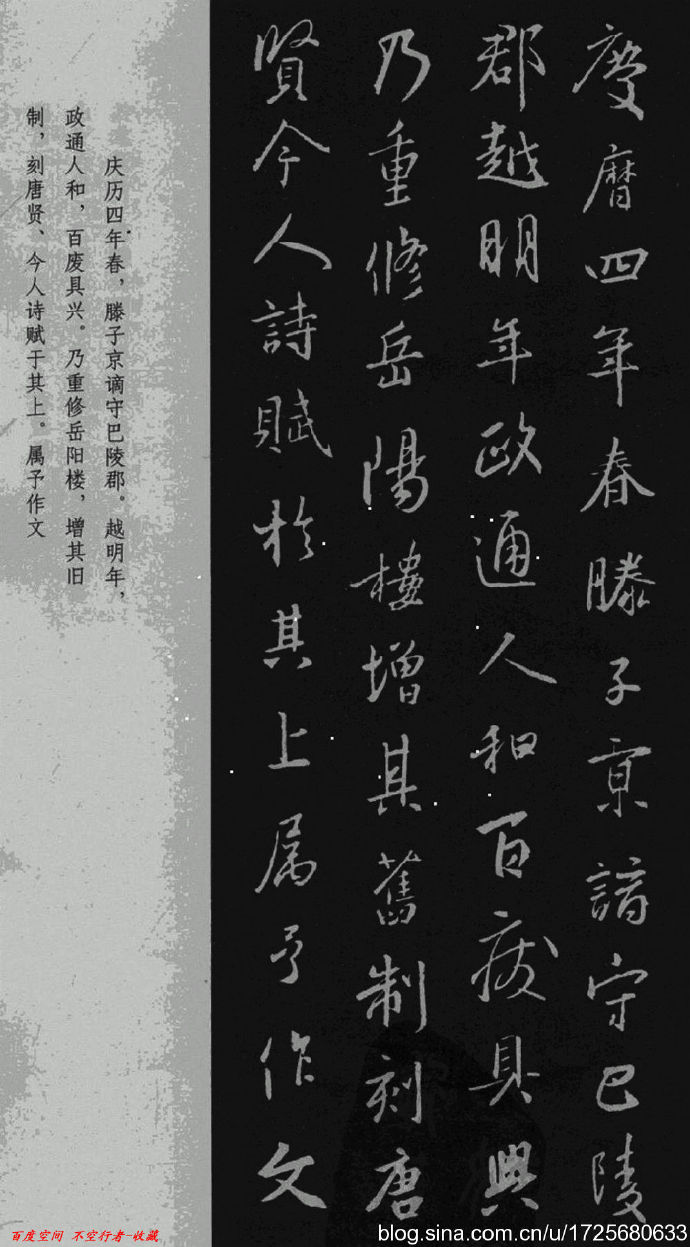 慶曆四年春滕子京謫守巴陵
郡越明年政通人和百廢具興
乃重修岳陽樓增其舊制刻唐
賢今人詩賦於其上属予作文
庆历四年春，滕子京谪守巴陵郡。越明年，
政通人和，百废具兴。乃重修岳阳楼，增其旧
制，刻唐贤、今人诗赋于其上。属予作文
百度空间 不空行者-收藏
blog.sina.com.cn/u/1725680633